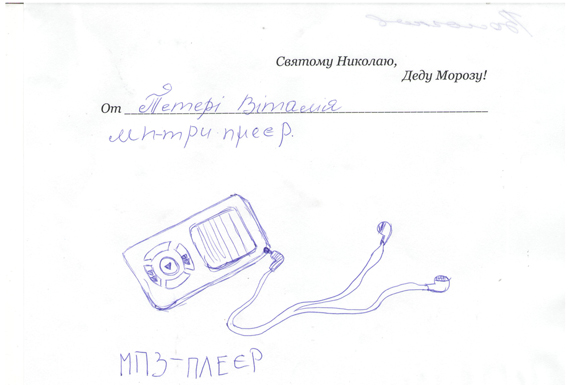 Святому Николаю,
Деду Морозу!
От Петері Віталія
мп-три-преєр.
МПЗ-ПЛЕЄР